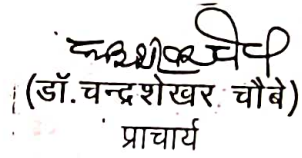 (डॉ. चन्द्रशेखर चौबे)
प्राचार्य